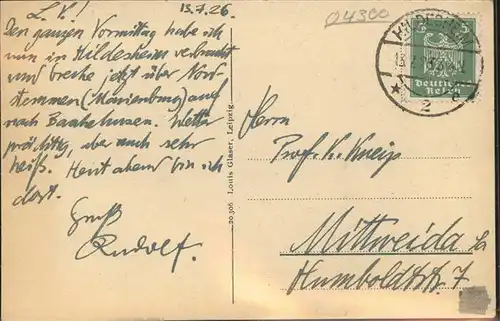 L. V.!
13.7.26.
Den ganzen Vormittag habe ich
nun in Hildesheim verbracht
und breche jetzt über Nord-
stemmen (Marienburg) auf
nach Wetter
prächtig, aber auch sehr
heiß. Heut abend bin ich
dort.
Gruß
Rudolf.
20306 Louis Glaser, Leipzig.
04300
HILDESHEIM
2 c
Deutsches
Reich
Herrn
Prof. K. Kneip
Mittweida
Humboldtstr. 7